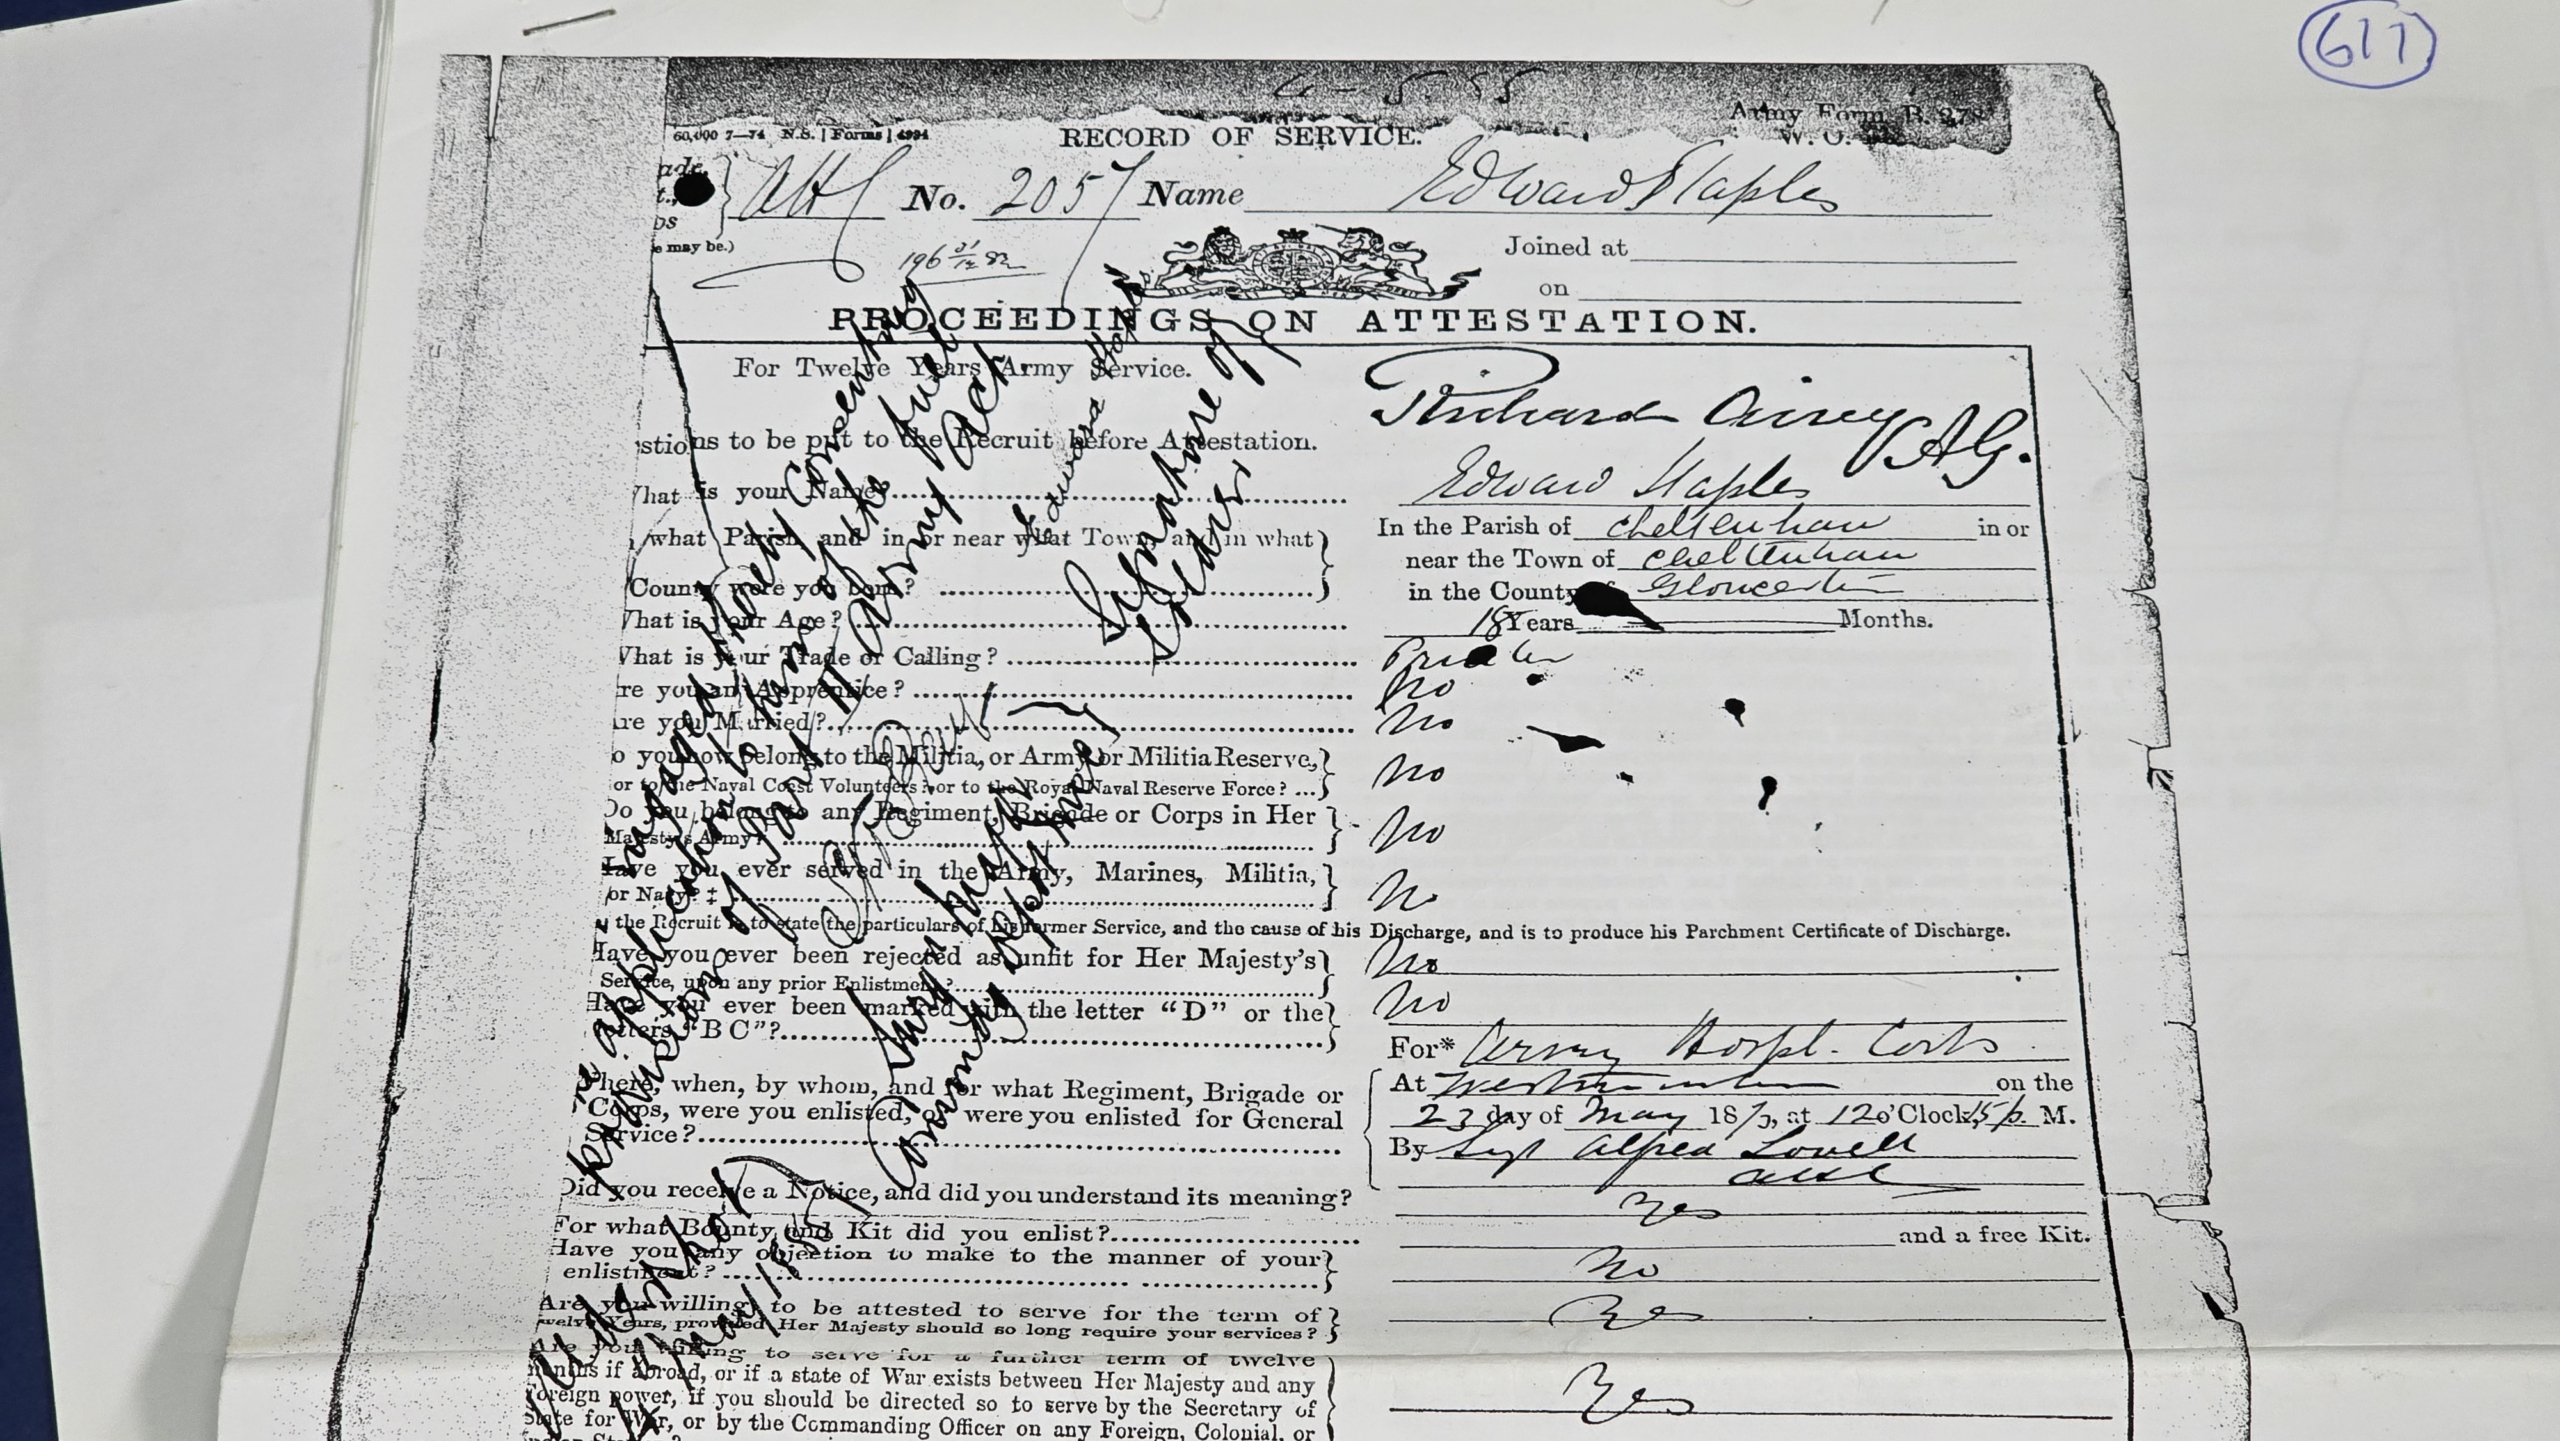 617
4-5.85
Army Form B. 278
60,000 7—74 N.S. | Forms | 4994
RECORD OF SERVICE.
W. O.
AHC No. 2057 Name Edward Staples
e may be.)
Joined at
on
PROCEEDINGS ON ATTESTATION.
For Twelve Years Army Service.
Richard Airey AG.
stions to be put to the Recruit before Attestation.
What is your Name? Edward Staples
what Parish and in or near what Town, and in what In the Parish of Cheltenham in or
near the Town of Cheltenham
County were you born? in the County of Gloucester
What is your Age? 18 Years Months.
What is your Trade or Calling?
re you an Apprentice? No
Are you Married? No
o you now belong to the Militia, or Army or Militia Reserve, No
or to the Naval Coast Volunteers? or to the Royal Naval Reserve Force? ...
Do you belong to any Regiment, Brigade or Corps in Her No
Majesty's Army?
Have you ever served in the Army, Marines, Militia, No
or Navy? ‡
the Recruit is to state the particulars of his former Service, and the cause of his Discharge, and is to produce his Parchment Certificate of Discharge.
Have you ever been rejected as unfit for Her Majesty's No
Service, upon any prior Enlistment?
Have you ever been marked with the letter "D" or the No
letters "B C"?
For* Army Hospl. Corps
Where, when, by whom, and for what Regiment, Brigade or At Westminster on the
Corps, were you enlisted, or were you enlisted for General 23 day of May 187, at 12 o'Clock, 15 p. M.
Service? By Sgt Alfred Lovell
AHC
Did you receive a Notice, and did you understand its meaning? Yes
For what Bounty and Kit did you enlist? and a free Kit.
Have you any objection to make to the manner of your No
enlistment?
Are you willing to be attested to serve for the term of Yes
Twelve Years, provided Her Majesty should so long require your services?
Are you willing to serve for a further term of twelve
months if abroad, or if a state of War exists between Her Majesty and any Yes
foreign power, if you should be directed so to serve by the Secretary of
State for War, or by the Commanding Officer on any Foreign, Colonial, or
engaged
application
Part II Army Act
Edward Staples
Signature of
Soldier
Army Hospl
Comdg Dept
May 1885